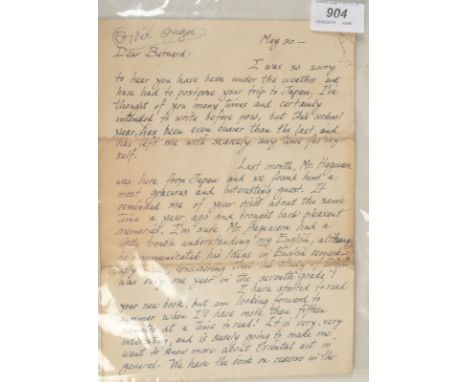 904
May 20 —
Dear Bernard:
I was so sorry
to hear you have been under the weather and
have had to postpone your trip to Japan. I've
thought of you many times and certainly
intended to write before now, but this school
year has been even busier than the last, and
has left me with scarcely any time for my
self.
Last month, Mr.
was here from Japan and we found him a
most gracious and interesting guest. It
reminded me of your visit about the same
time a year ago and brought back pleasent
memories. I'm sure Mr. had a
little trouble understanding my English, although
he communicated his ideas in English
considering that his study of
was only one year in the seventh grade!
I have started to read
your new book, but am looking forward to
summer when I'll have more than fifteen
minutes at a time to read! It is very, very
interesting, and is surely going to make me
want to know more about Oriental art in
general. We have the book on reserve in the